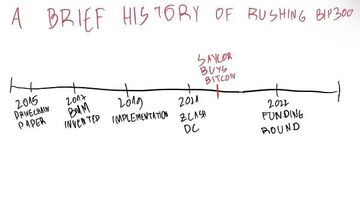 A BRIEF HISTORY OF RUSHING BIP300
SAYLOR
BUYS
BITCOIN
2015
DRIVECHAIN
PAPER
2017
BMM
INVENTED
2019
IMPLEMENTATION
2021
ZCASH
DC
2022
FUNDING
ROUND